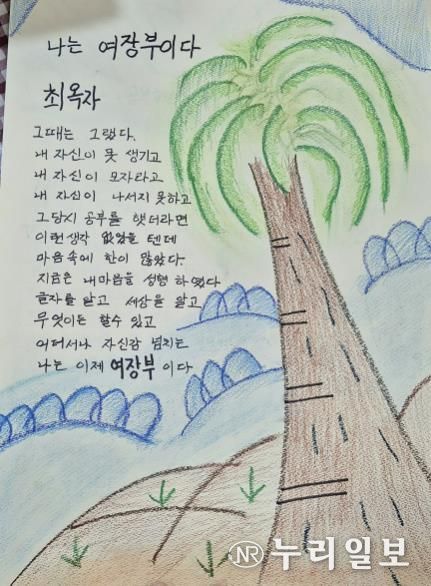 나는 여장부이다
최옥자
그때는 그랬다.
내 자신이 못 생기고
내 자신이 모자라고
내 자신이 나서지 못하고
그당시 공부를 했더라면
이런생각 없었을 텐데
마음속에 한이 많았다.
지금은 내마음을 성형 하였다
글자를 알고 세상을 알고
무엇이든 할수 있고
어디서나 자신감 넘치는
나는 이제 여장부 이다
NR 누리일보